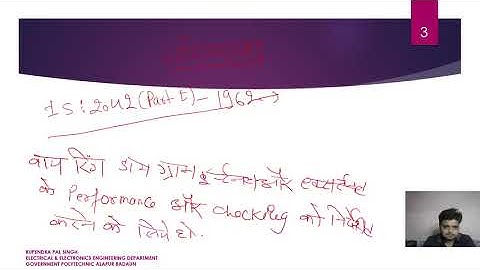 3
IS: 2042 (Part I) - 1962
वायरिंग डायग्राम
के Performance और checking को निर्देशित
करने के लिये हो.
RUPENDRA PAL SINGH
ELECTRICAL & ELECTRONICS ENGINEERING DEPARTMENT
GOVERNMENT POLYTECHNIC ALAPUR BADAUN